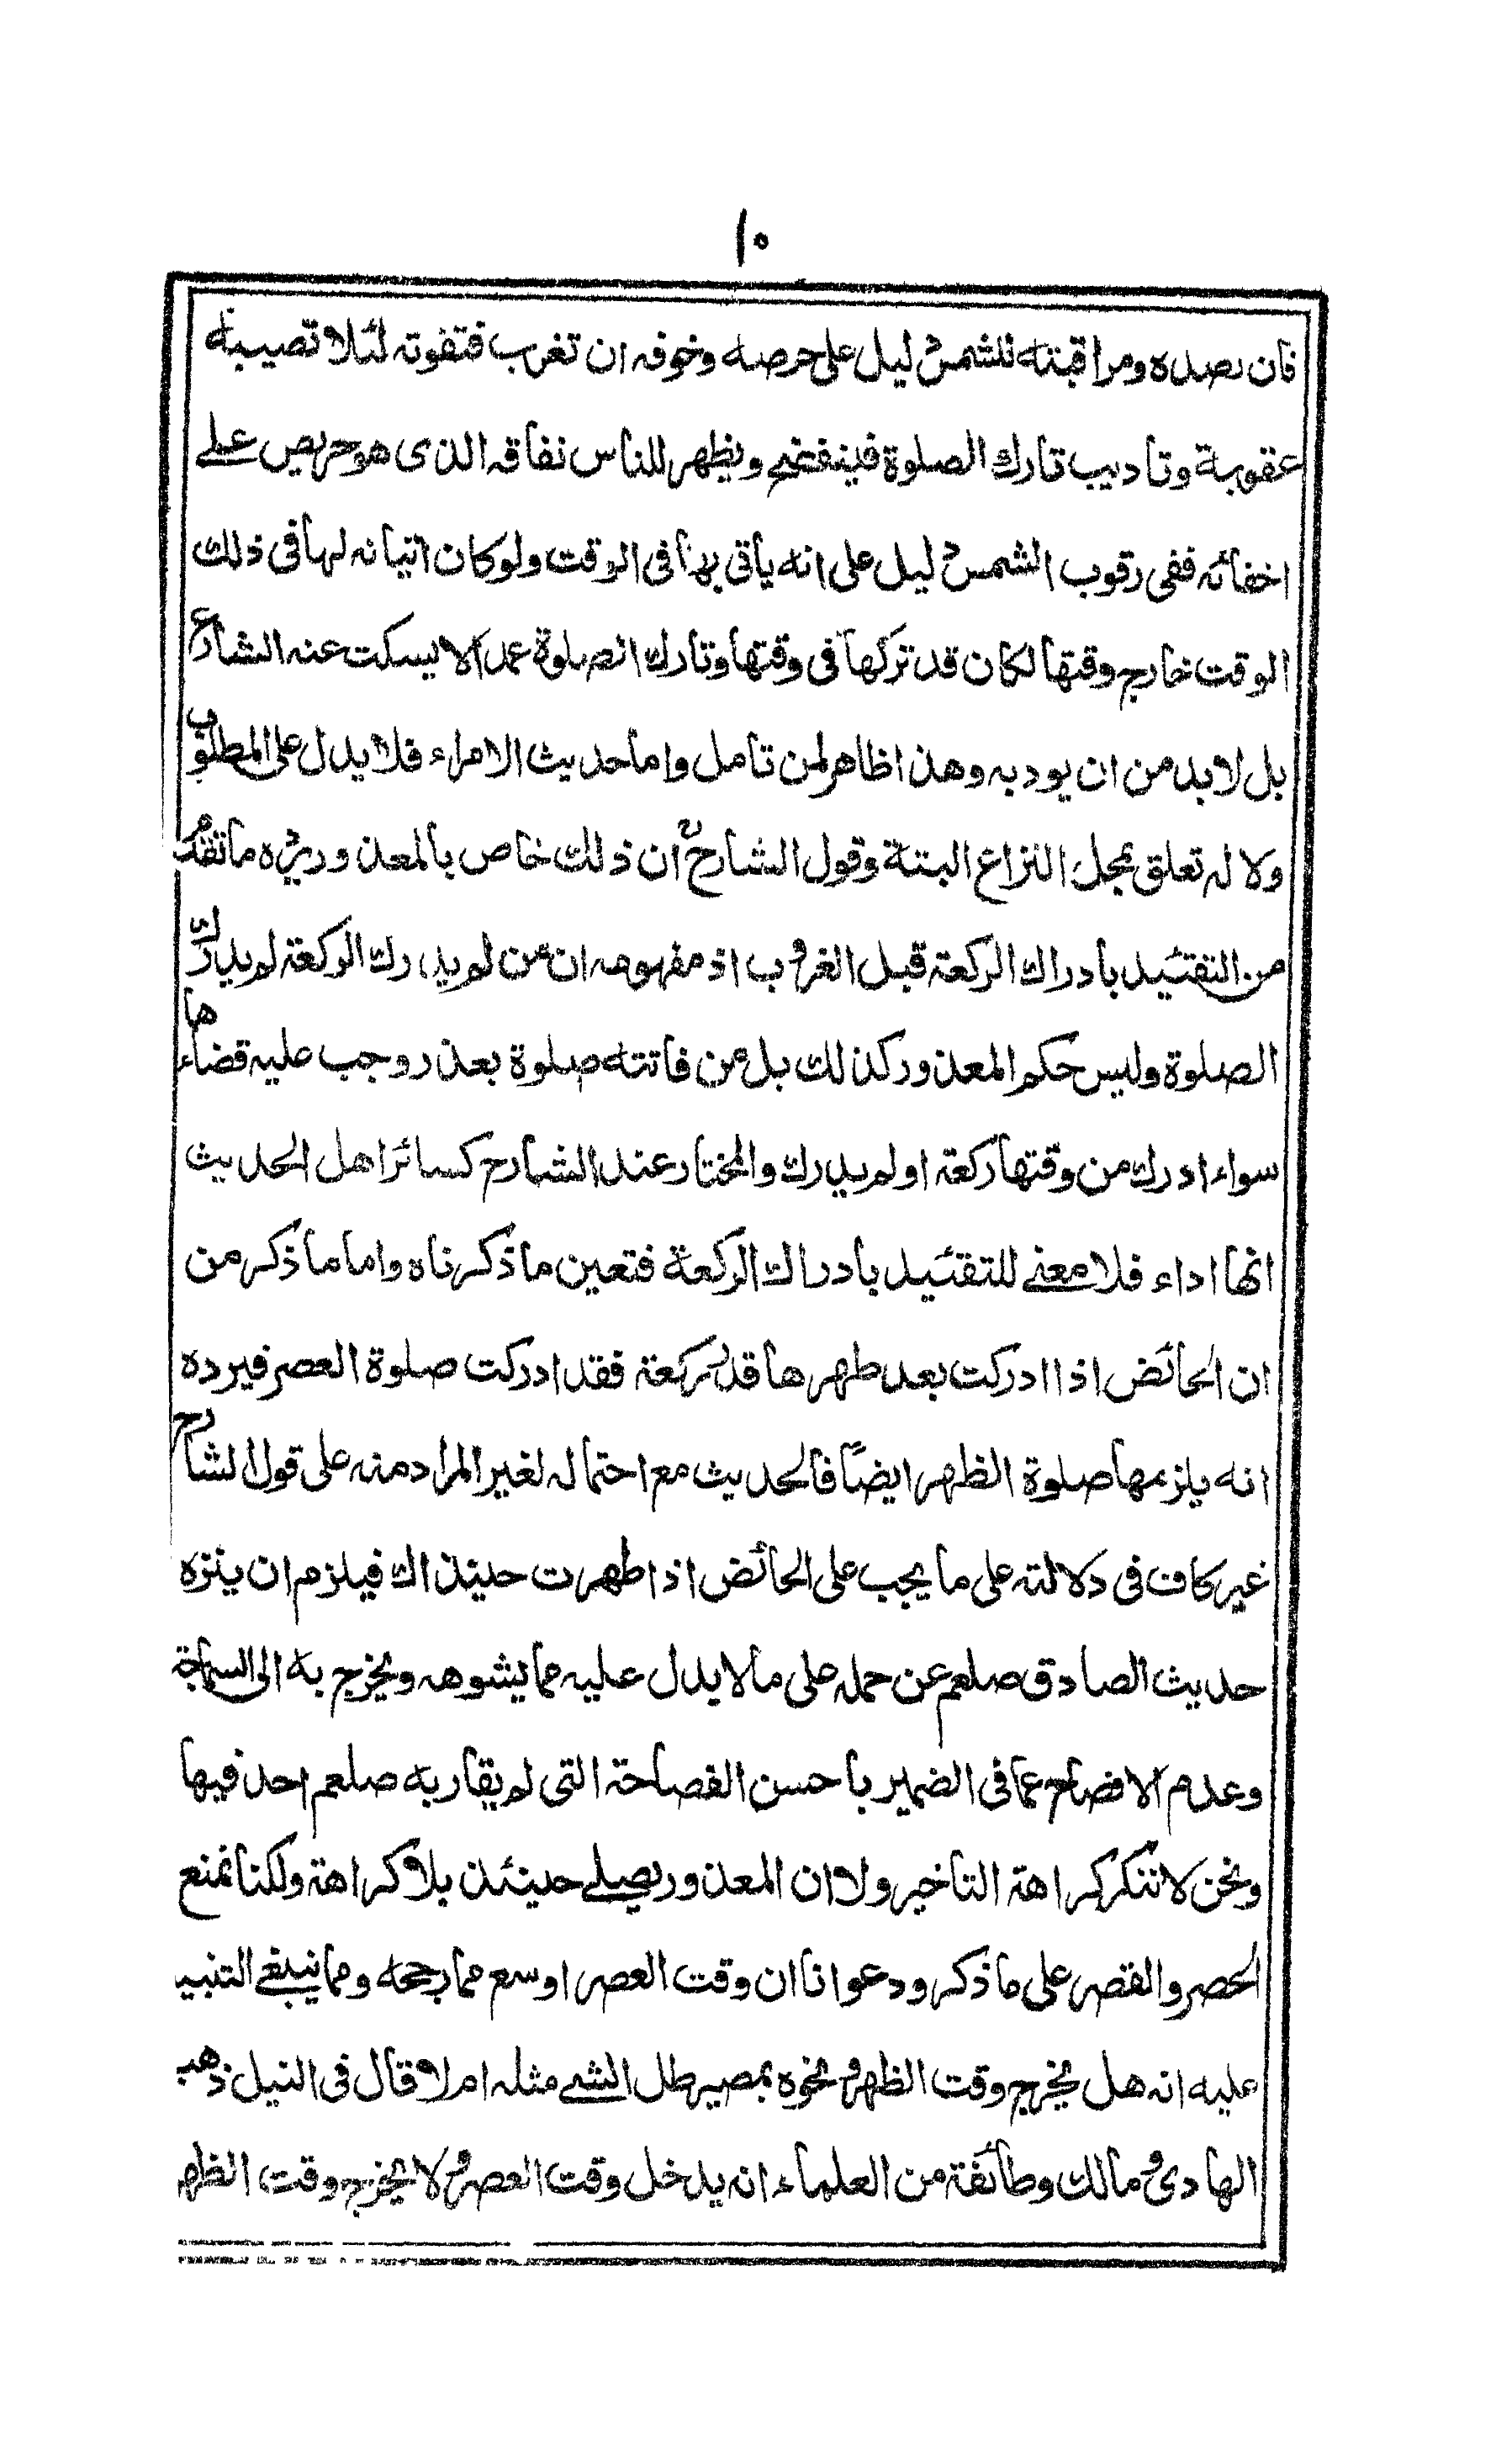 ١٠
فان رصده ومراقبته للشمس دليل على حرصه وخوفه ان تغرب فتفوته لئلا تصيبه
عقوبة وتاديب تارك الصلوة فينفضح ويظهر للناس نفاقه الذى هو حريص على
اخفائه ففى رقوب الشمس دليل على انه ياتى بها فى الوقت ولو كان اتيانه لها فى ذلك
الوقت خارج وقتها لكان قد تركها فى وقتها وتارك الصلوة عمدا لا يسكت عنه الشارع
بل لا بد من ان يودبه وهذا ظاهر لمن تامل واما حديث الامراء فلا يدل على المطلوب
ولا له تعلق بمحل النزاع البتة وقول الشارح ان ذلك خاص بالمعذور يرده ما تقدم
من التقئيد بادراك الركعة قبل الغروب اذ مفهومه ان من لم يدرك الركعة لم يدرك
الصلوة وليس حكم المعذور كذلك بل من فاتته صلوة بعذر وجب عليه قضاءها
سواء ادرك من وقتها ركعة او لم يدرك والمختار عند الشارح كسائر اهل الحديث
انها اداء فلا معنى للتقئيد بادراك الركعة فتعين ما ذكرناه واما ما ذكر من
ان الحائض اذا ادركت بعد طهرها قدر ركعة فقد ادركت صلوة العصر فيرده
انه يلزمها صلوة الظهر ايضًا فالحديث مع احتماله لغير المراد منه على قول الشارح
غير كاف فى دلالته على ما يجب على الحائض اذا طهرت حينذاك فيلزم ان ينزه
حديث الصادق صلعم عن حمله على ما لا يدل عليه مما يشوهه ويخرج به الى السماجة
وعدم الافصاح عما فى الضمير باحسن الفصاحة التى لم يقاربه صلعم احد فيها
ونحن لا ننكر كراهة التاخير ولا ان المعذور يصلى حينئذ بلا كراهة ولكنا نمنع
الحصر والقصر على ما ذكر ودعوانا ان وقت العصر اوسع مما رجحه ومما ينبغى التنبيه
عليه انه هل يخرج وقت الظهر ونحوه بمصير ظل الشى مثله ام لا قال فى النيل ذهب
الهادى ومالك وطائفة من العلماء انه يدخل وقت العصر ولا يخرج وقت الظهر